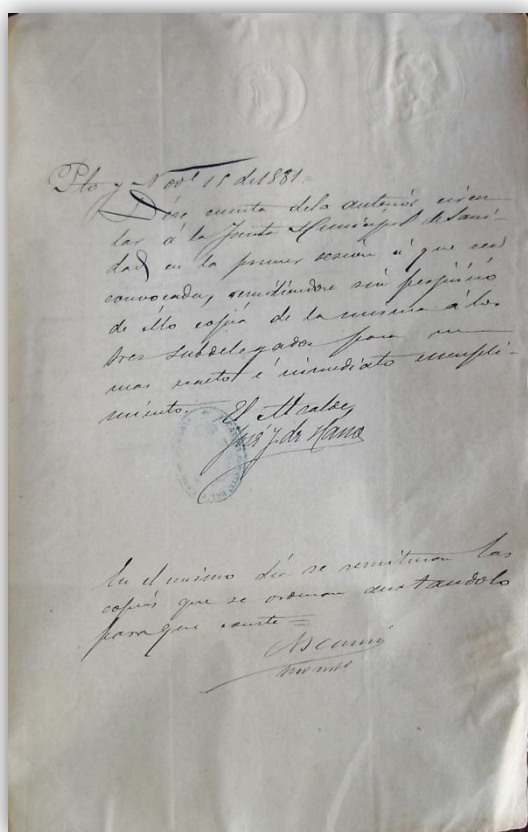 Pto y Nov.e 15 de 1881=
Dése cuenta dela anterior circu-
lar á la Junta Municipal de Sani-
dad en la primer sesion á que sea
convocada, remitiendose sin perjuicio
de ello copia de la misma á los
tres Subdelegados para su
mas exacto é inmediato cumpli-
miento.
El Alcalde,
José J. de
En el mismo dia se remitieron las
copias que se ordenan anotandolo
para que conste=